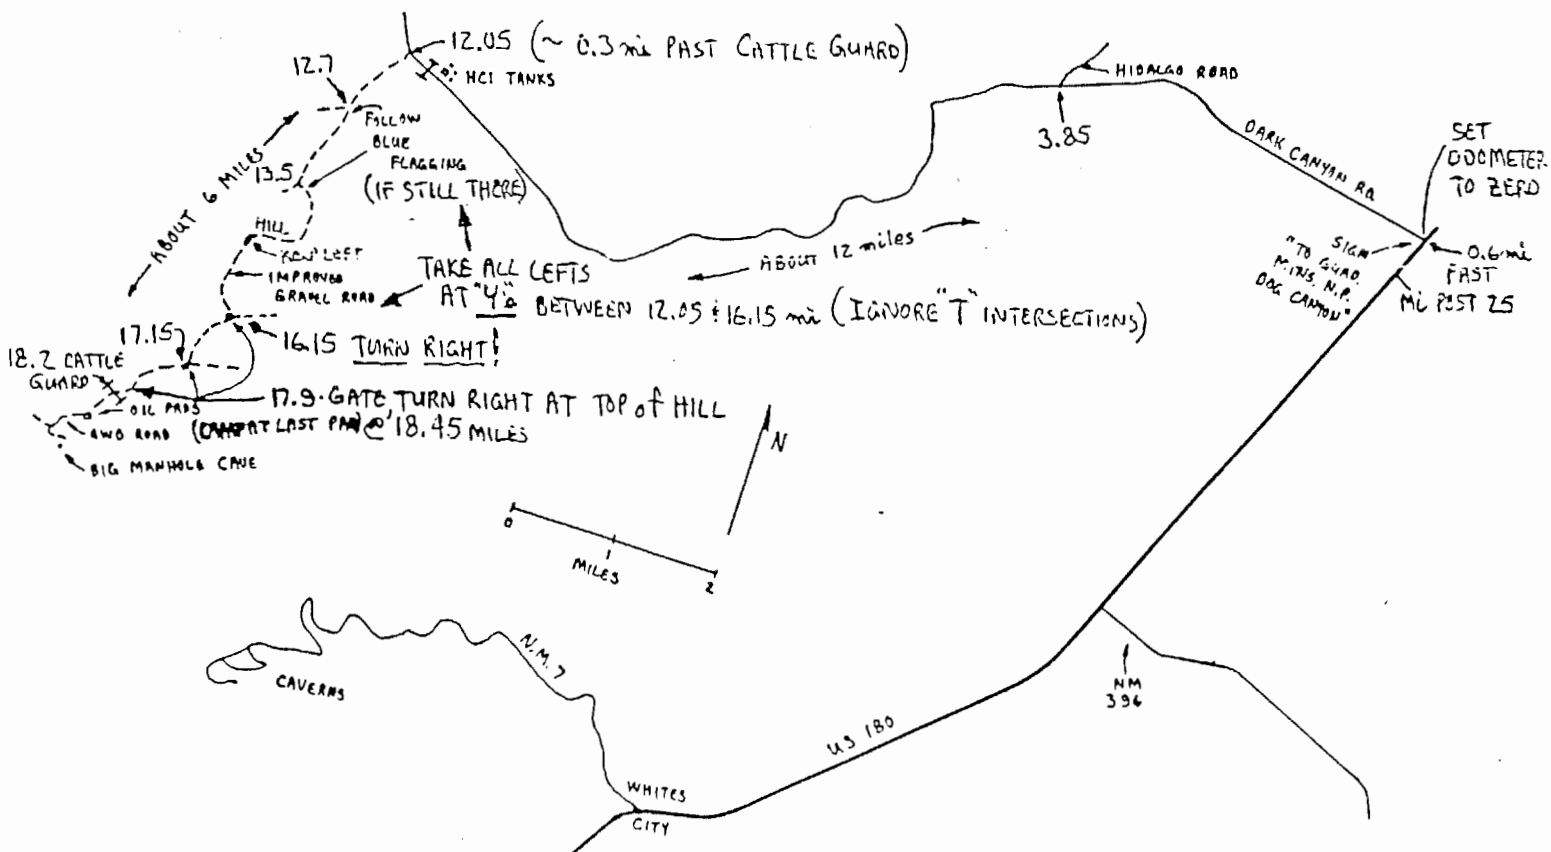 12.05 (~ 0.3 mi PAST CATTLE GUARD)
HCI TANKS
12.7
FOLLOW
BLUE
FLAGGING
(IF STILL THERE)
ABOUT 6 MILES
13.5
HILL
LEFT
IMPROVED
GRAVEL ROAD
TAKE ALL LEFTS
AT "Y's BETWEEN 12.05 & 16.15 mi (IGNORE "T" INTERSECTIONS)
ABOUT 12 miles
HIDALGO ROAD
3.85
DARK CANYAN RD.
SET
ODOMETER
TO ZERO
SIGN
"TO GUAD.
MTNS. N.P.
DOG CANYON"
0.6 mi
PAST
Mi POST 25
16.15 TURN RIGHT!
17.15
18.2 CATTLE
GUARD
17.9 - GATE, TURN RIGHT AT TOP of HILL
OIL PADS
4WD ROAD (CAMP AT LAST PAD @ 18.45 MILES
BIG MANHOLE CAVE
N
0
1
2
MILES
CAVERNS
N.M. 7
WHITES
CITY
US 180
NM
396